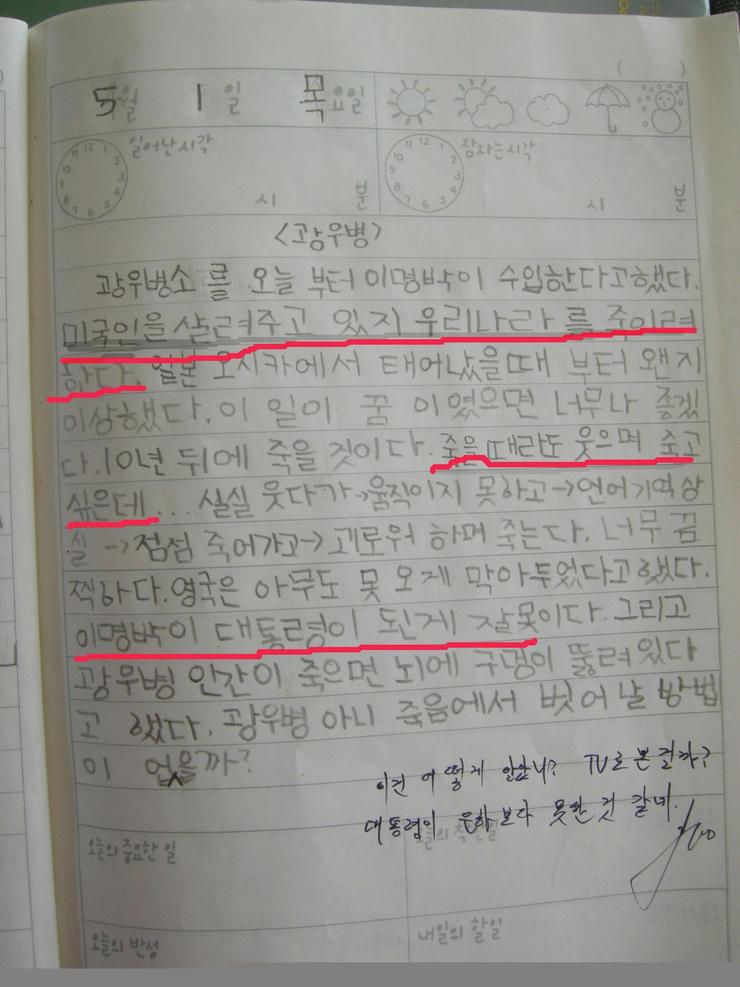 ( )
5월 1일 목요일
일어난시각
잠자는시각
시 분
시 분
<광우병>
광우병소 를 오늘 부터 이명박이 수입한다고했다.
미국인을 살려주고 있지 우리나라 를 죽이려
하다. 일본 오시카에서 태어났을때 부터 왠지
이상했다. 이 일이 꿈 이였으면 너무나 좋겠
다. 10년 뒤에 죽을 것이다. 죽을 때라도 웃으며 죽고
싶은데... 실실 웃다가→움직이지 못하고→언어기억상
실→점점 죽어가고→괴로워 하며 죽는다. 너무 끔
찍하다. 영국은 아무도 못 오게 막아두었다고했다.
이명박이 대통령이 된게 잘못이다. 그리고
광우병 인간이 죽으면 뇌에 구멍이 뚫려있다
고 했다. 광우병 아니 죽음에서 벗어 날 방법
이 없을까?
이건 어떻게 알았니? TV로 본 걸까?
대통령이 은하보다 못한 것 같네.
오늘의 중요한 일
오늘의 착한일
오늘의 반성
내일의 할일